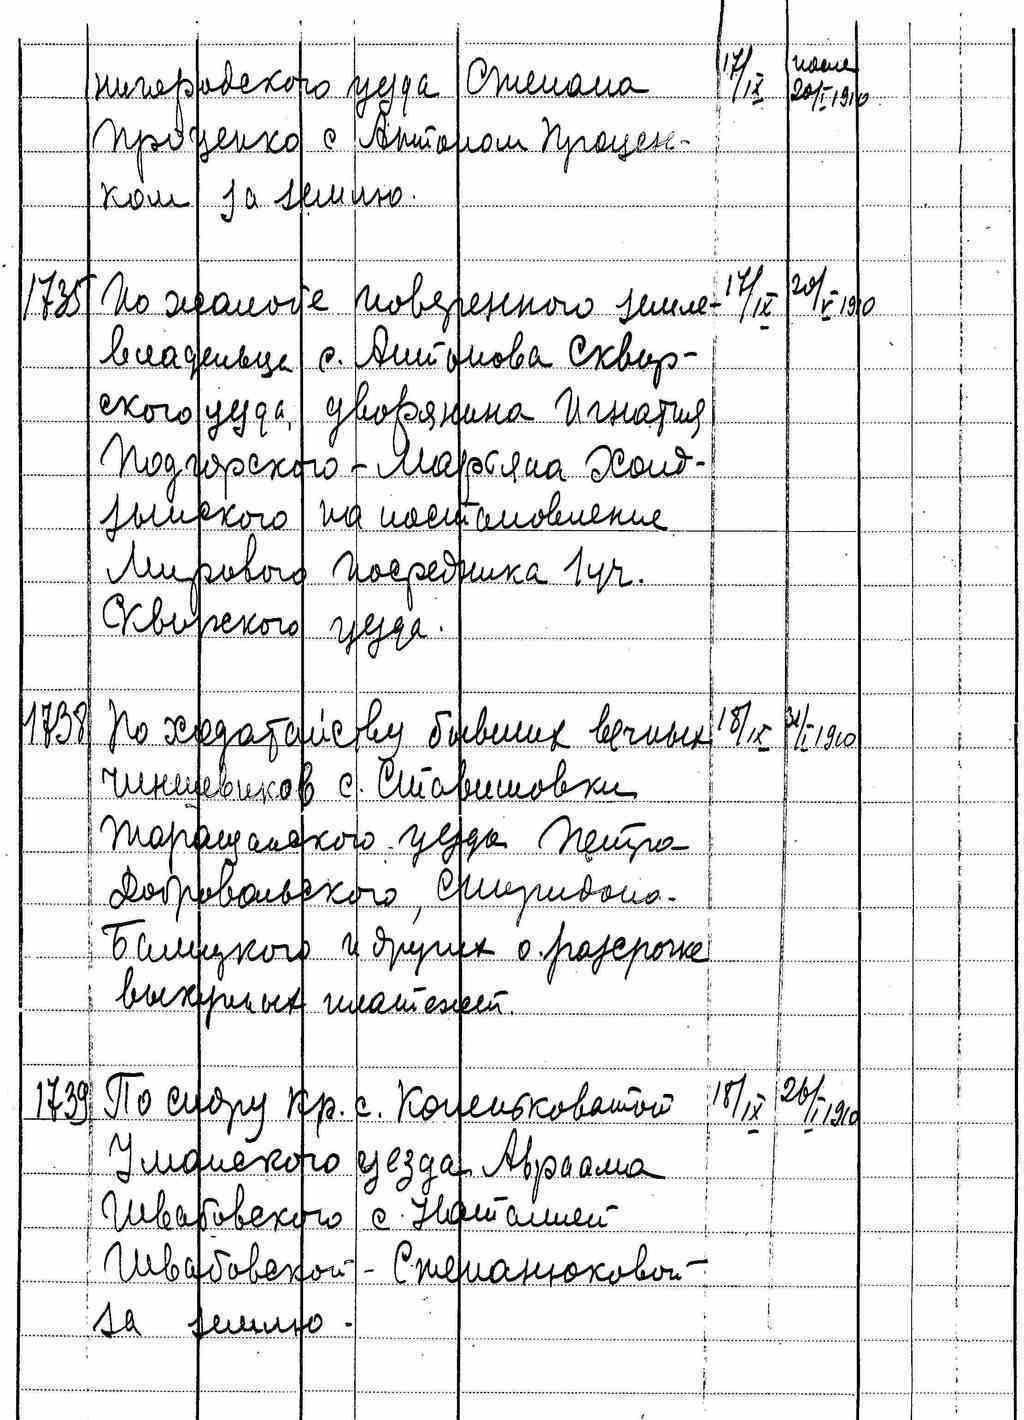 нигородского уезда Степана 17/IX после 20/I 1910
Проценко с Антоном Процен-
ком за землю.
1735 По жалобе поверенного земле- 17/IX 20/V 1910
владельца с. Антонова Сквир-
ского уезда, дворянина Игнатия
Подгорского - Марьяна Холд-
зынского на постановление
Мирового Посредника 1 уч.
Сквирского уезда.
1738 По ходатайству бывших вечных 18/IX 31/I 1910
чиншевиков с. Ставишовки
Таращанского уезда Петра
Добровольского, Спиридона
Балицкого и других о разсрочке
выкупных платежей.
1739 По спору кр. с. Копеньковатой 18/IX 26/I 1910
Уманского уезда Авраама
Швабовского с Наталией
Швабовской - Степанюковой
за землю.